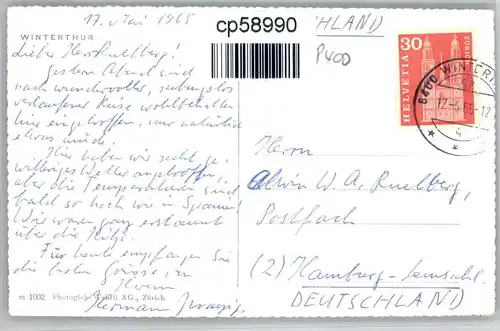 17. Mai 1965
cp58990
DEUTSCHLAND
P400
WINTERTHUR
Lieber Herr Ruelberg!
Gestern Abend sind
nach wundervoller, reibungslos
verlaufener Reise wohlbehalten
hier eingetroffen, nur natürlich
etwas müde.
Hier haben wir recht ge-
angetroffen,
aber die Temperaturen sind
bald so hoch wie in Spanien!
Wir waren ganz erstaunt
über die Hitze.
Für heute empfangen Sie
die besten Grüsse, in
Ihrem
Hermann
m 1002 Photoglob-Wehrli AG., Zürich
30
HELVETIA
ZÜRICH
8400 WINTERTHUR
17.-5.65-12
Herrn
Alwin W. A. Ruelberg,
Postfach
(2) Hamburg-
DEUTSCHLAND